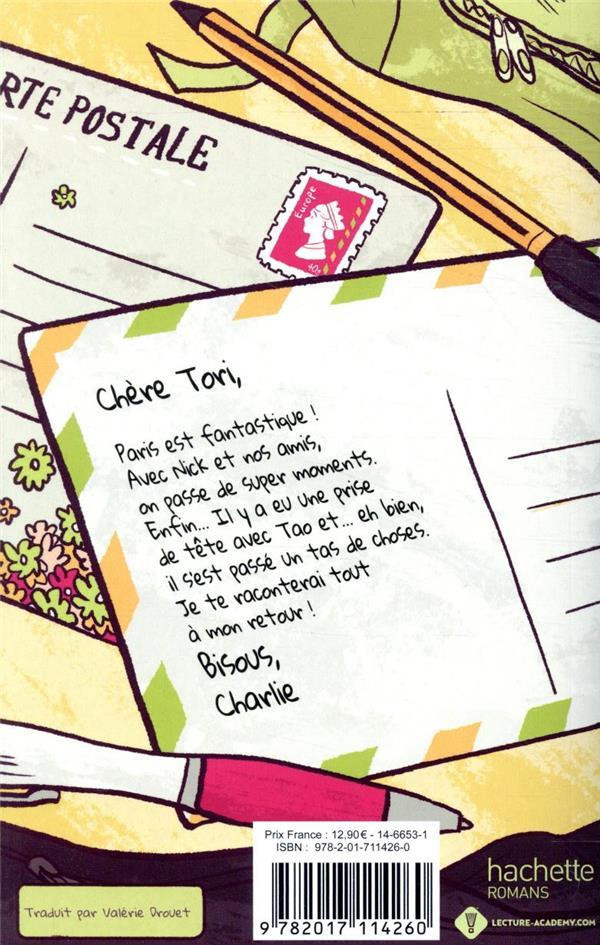 RTE POSTALE
Europe
40c
Chère Tori,
Paris est fantastique !
Avec Nick et nos amis,
on passe de super moments.
Enfin... Il y a eu une prise
de tête avec Tao et... eh bien,
il s'est passé un tas de choses.
Je te raconterai tout
à mon retour !
Bisous,
Charlie
Prix France : 12,90€ - 14-6653-1
ISBN : 978-2-01-711426-0
9 782017 114260
hachette
ROMANS
LECTURE-ACADEMY.COM
Traduit par Valérie Drouet